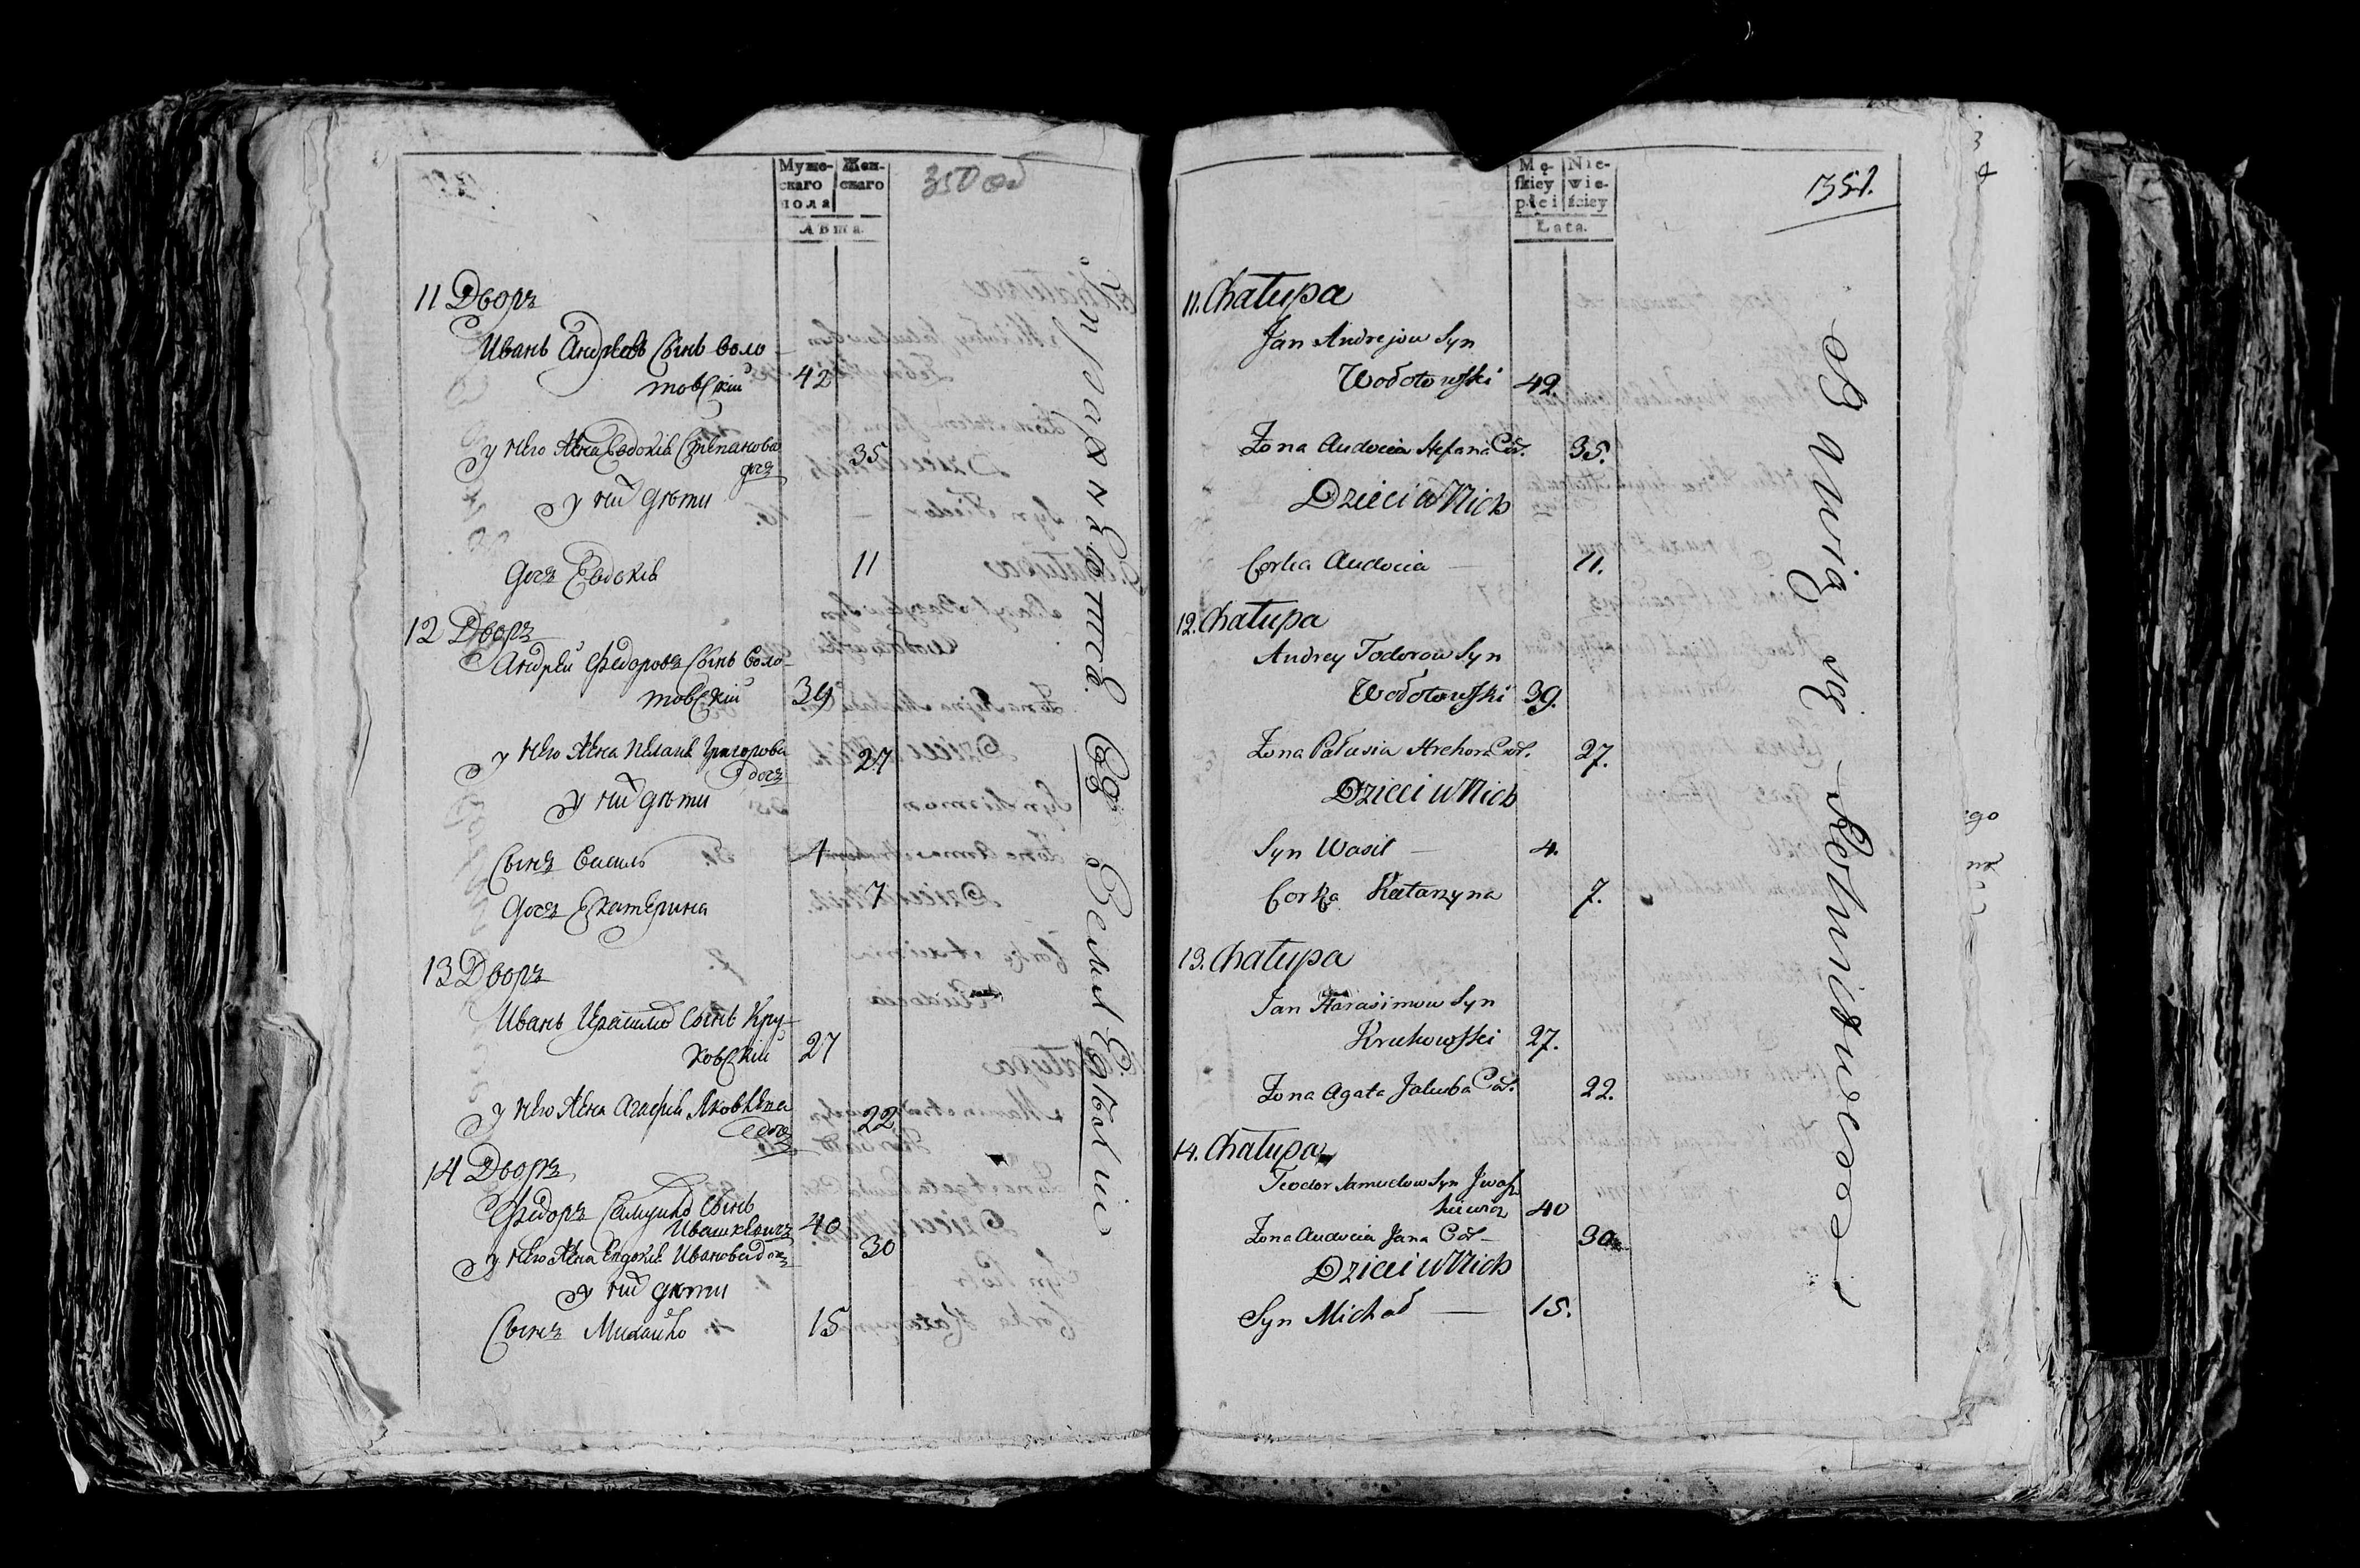 Муже-
скаго
пола
Жен-
скаго
Лѣта.
350 об
11 Дворъ
Иванъ Андреевъ Сынъ Воло-
товскій 42
у него Жена Евдокія Степанова
дочь 35
у нихъ дѣти
дочь Евдокія 11
12 Дворъ
Андрей Федоровъ Сынъ Воло-
товскій 39
у него Жена Пелагія Григорова
дочь 27
у нихъ дѣти
Сынъ Василь 4
дочь Екатерина 7
13 Дворъ
Иванъ Сынъ Кру-
ковскій 27
у него Жена Агафія Яковлева
дочь 22
14 Дворъ
Федоръ Самуйловъ Сынъ
Ивашкевичъ 40
у него Жена Евдокія Иванова дочь 30
у нихъ дѣти
Сынъ Михайло 15
Mę-
skiey
płci
Nie-
wie-
ściey
Lata.
351.
11. Chałupa
Jan Andrejow Syn
Wołotowski 42.
Żona Audocia Stefana Cór. 35.
Dzieci u Nich
Corka Audocia — 11.
12. Chałupa
Andrey Todorow Syn
Wołotowski 39.
Żona Pałusia Hrehora Cór. 27.
Dzieci u Nich
Syn Wasil — 4.
Corka Katarzyna 7.
13. Chałupa
Jan Harasimow Syn
Krukowski 27.
Żona Agata Jakuba Cór. 22.
14. Chałupa
Teodor Samuelow Syn Iwasz
kiewicz 40
Żona Audocia Jana Cór — 30.
Dzieci u Nich
Syn Michał — 15.